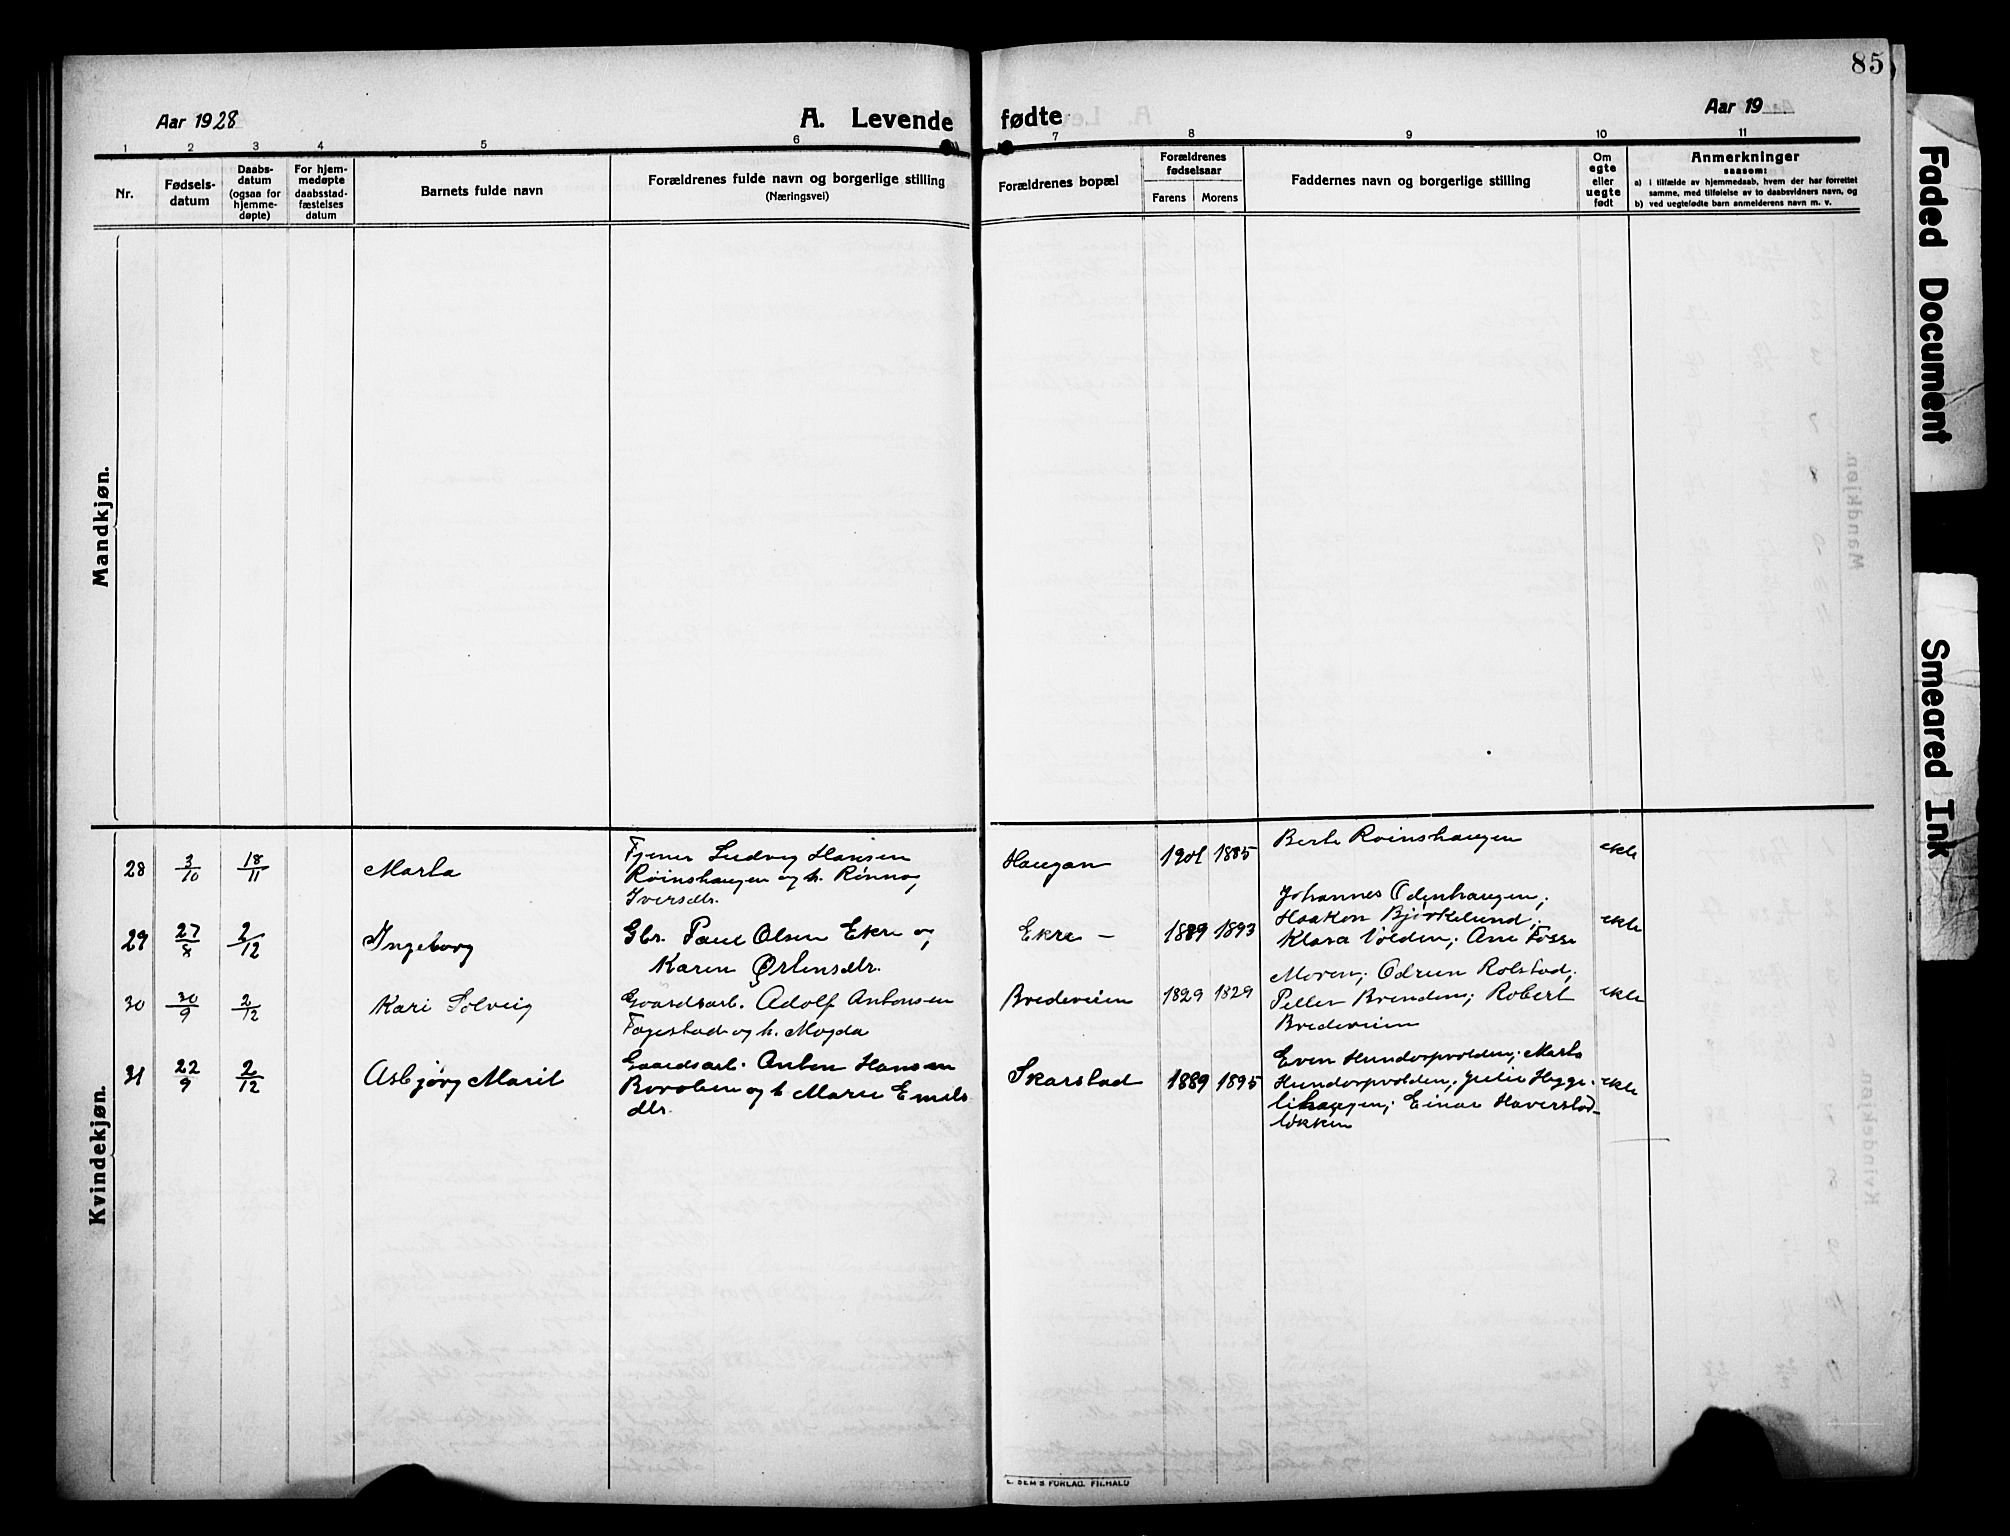 85
Aar 1928
A. Levende fødte
Aar 19
1 2 3 4 5 6 7 8 9 10 11
Nr.
Fødsels-
datum
Daabs-
datum
(ogsaa for
hjemme-
døpte)
For hjem-
medøpte
daabsstad-
fæstelses
datum
Barnets fulde navn
Forældrenes fulde navn og borgerlige stilling
(Næringsvei)
Forældrenes bopæl
Forældrenes
fødselsaar
Farens Morens
Faddernes navn og borgerlige stilling
Om
egte
eller
uegte
født
Anmerkninger
saasom:
a) i tilfælde av hjemmedaab, hvem der har forrettet
samme, med tilføielse av to daabsvidners navn, og
b) ved uegtefødte barn anmelderens navn m. v.
Mandkjøn.
Kvindekjøn.
28 3/10 18/11 Marta
Tjener Ludvig Hansen
Roinshaugen og h. Rønnog
Iversdtr.
Haugan 1901 1885
Berte Roinshaugen
ekte
29 27/8 2/12 Ingeborg
Gbr. Paul Olsen Ekre og
Karen Østensdtr.
Ekre – 1889 1893
Johannes Odenhaugen;
Haakon Bjørkelund;
Klara Volden; Ane Fosse
ekte
30 30/9 2/12 Kari Solveig
Gaardsarb. Adolf Antonsen
Fagestad og h. Magda
Bredeveien 1829 1829
Moren; Odrun Rolstad;
Petter Brenden; Robert
Bredeveien
ekte
31 22/9 2/12 Asbjørg Marit
Gaardsarb. Anton Hansen
og h Marie Emils
dtr.
Skarstad 1889 1895
Even Hundorpvolden; Marta
Hundorpvolden; Julie Hygge-
lihaugen; Einar Haverstad-
løkken
ekte
E. SEM'S FORLAG. FR.HALD
Faded Document
Smeared Ink